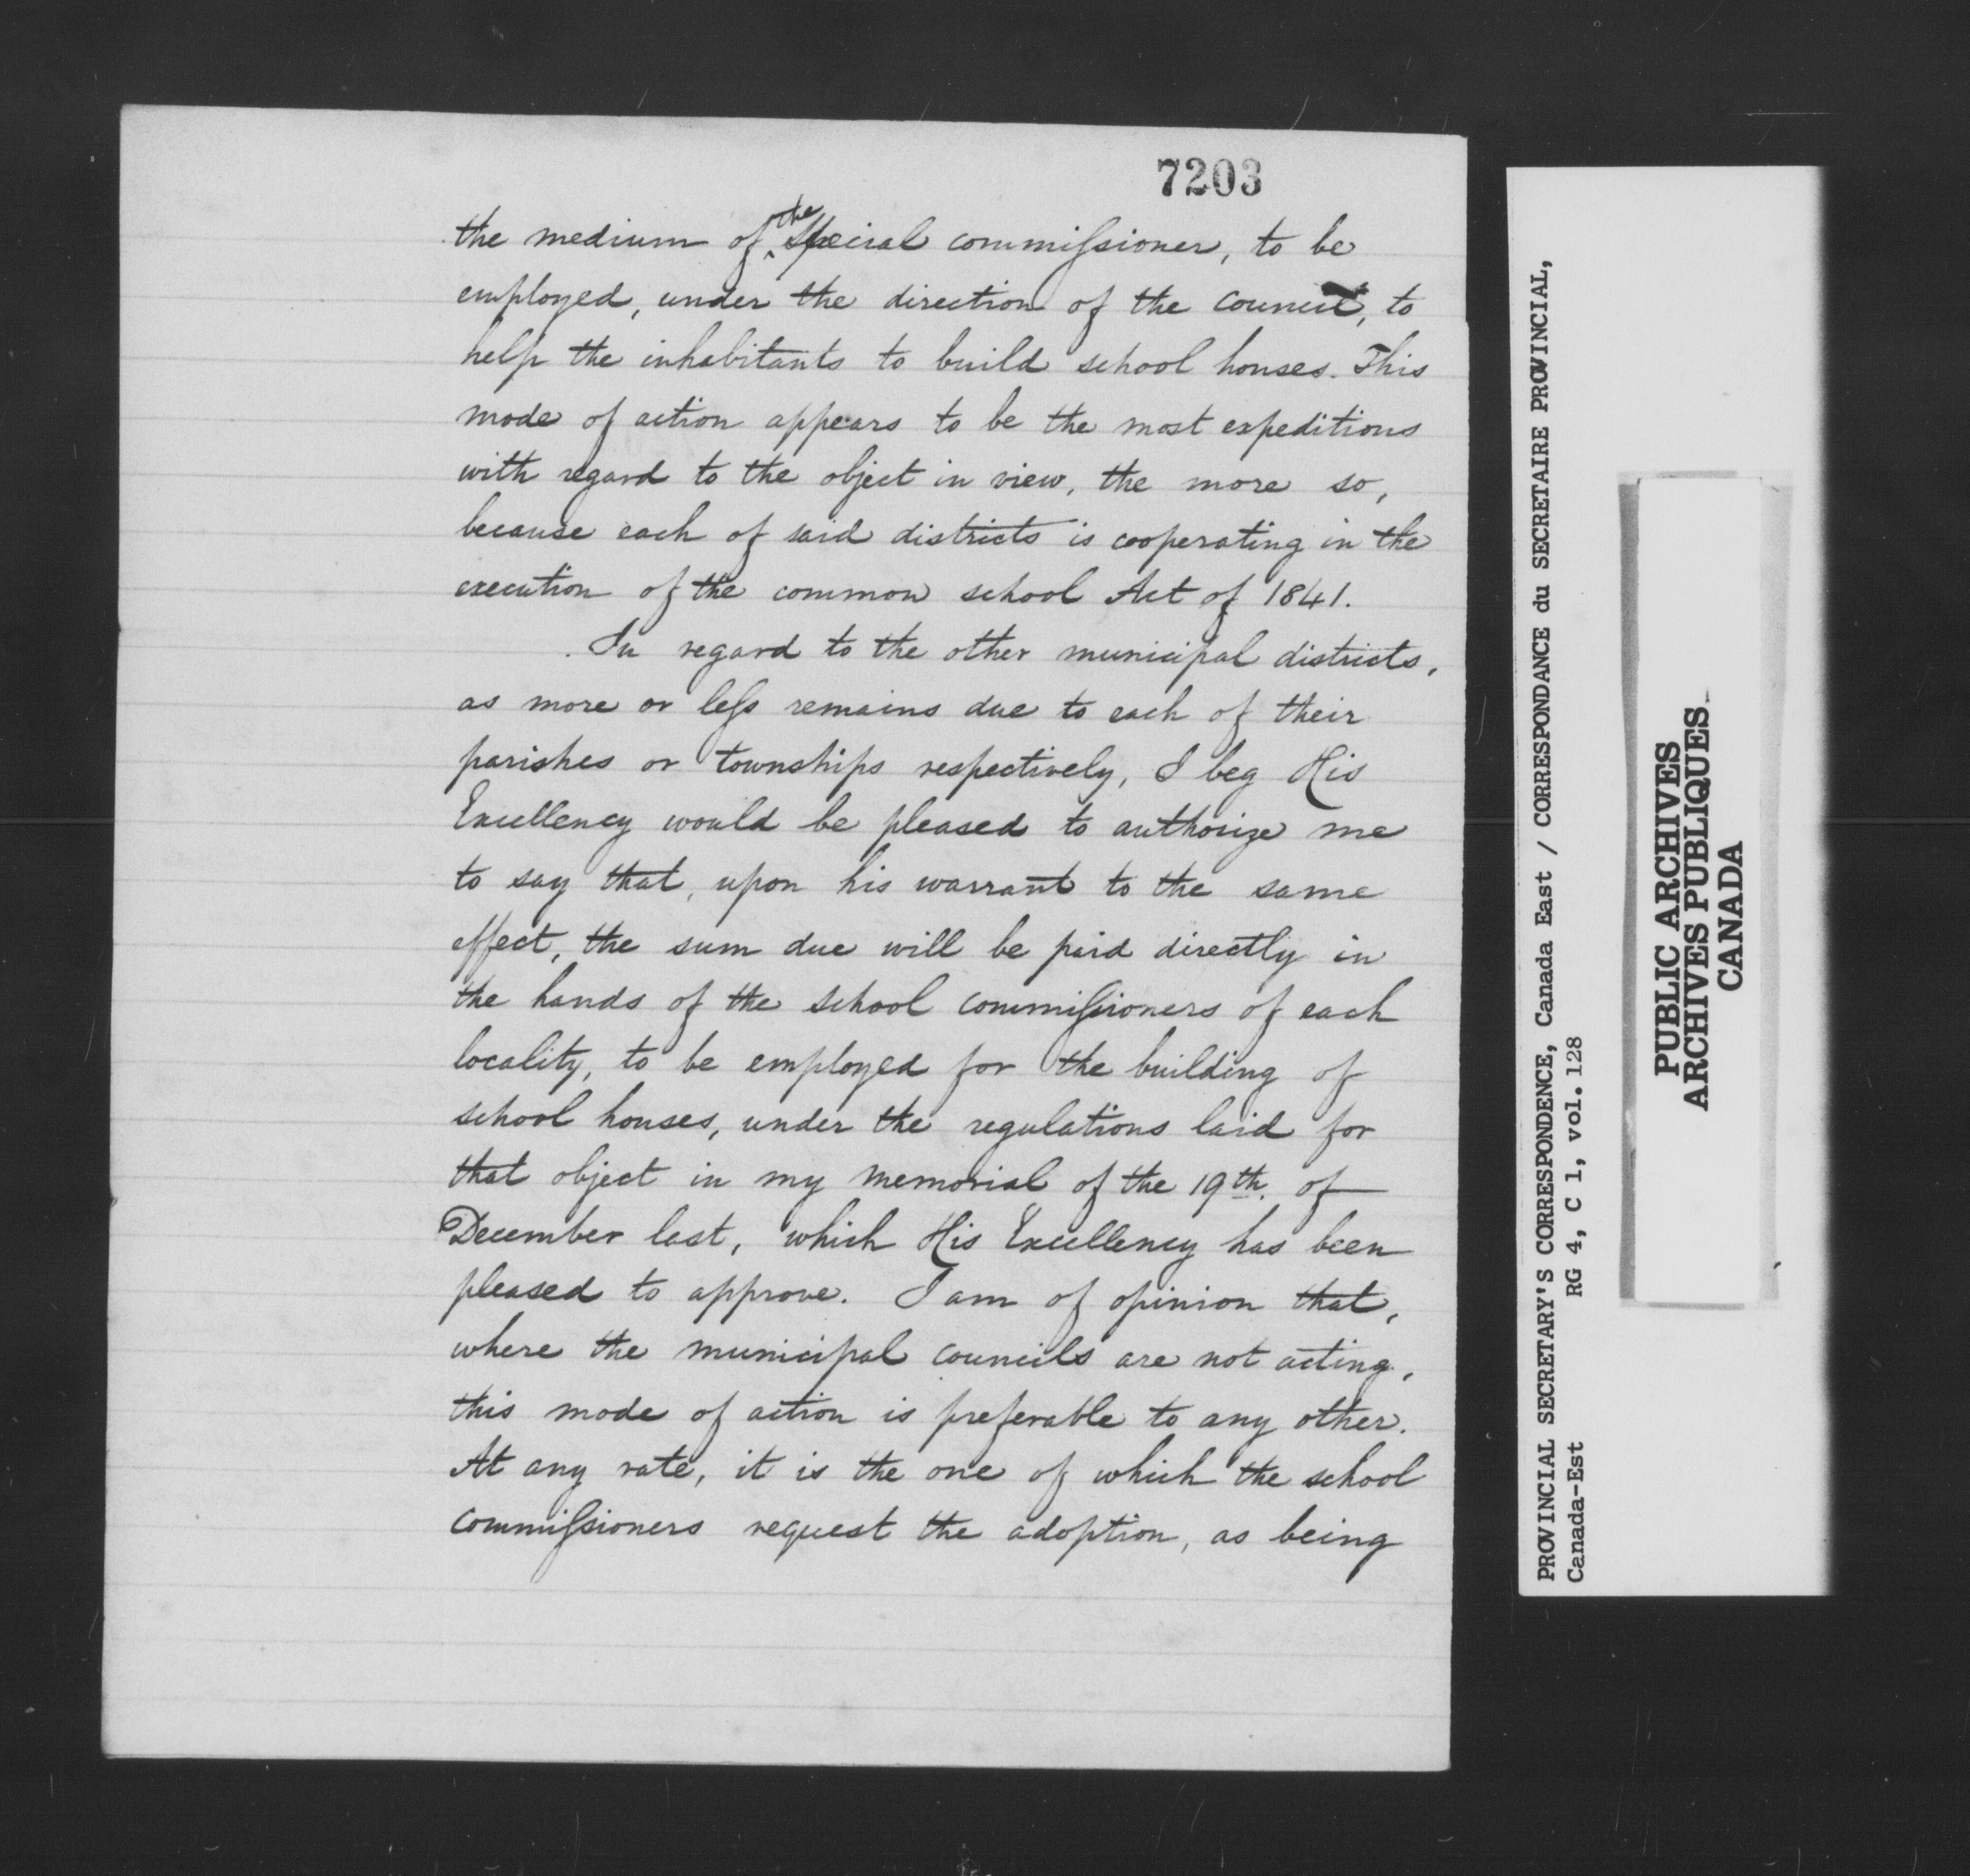 7203
the medium of the special commissioner, to be
employed, under the direction of the council, to
help the inhabitants to build school houses. This
mode of action appears to be the most expeditious
with regard to the object in view, the more so,
because each of said districts is cooperating in the
execution of the common school Act of 1841.
In regard to the other municipal districts,
as more or less remains due to each of their
parishes or townships respectively, I beg His
Excellency would be pleased to authorize me
to say that, upon his warrant to the same
effect, the sum due will be paid directly in
the hands of the school commissioners of each
locality, to be employed for the building of
school houses, under the regulations laid for
that object in my memorial of the 19th. of
December last, which His Excellency has been
pleased to approve. I am of opinion that,
where the municipal councils are not acting,
this mode of action is preferable to any other.
At any rate, it is the one of which the school
commissioners request the adoption, as being
PROVINCIAL SECRETARY'S CORRESPONDENCE, Canada East / CORRESPONDANCE du SECRETAIRE PROVINCIAL,
Canada-Est RG 4, C 1, vol. 128
PUBLIC ARCHIVES
ARCHIVES PUBLIQUES
CANADA